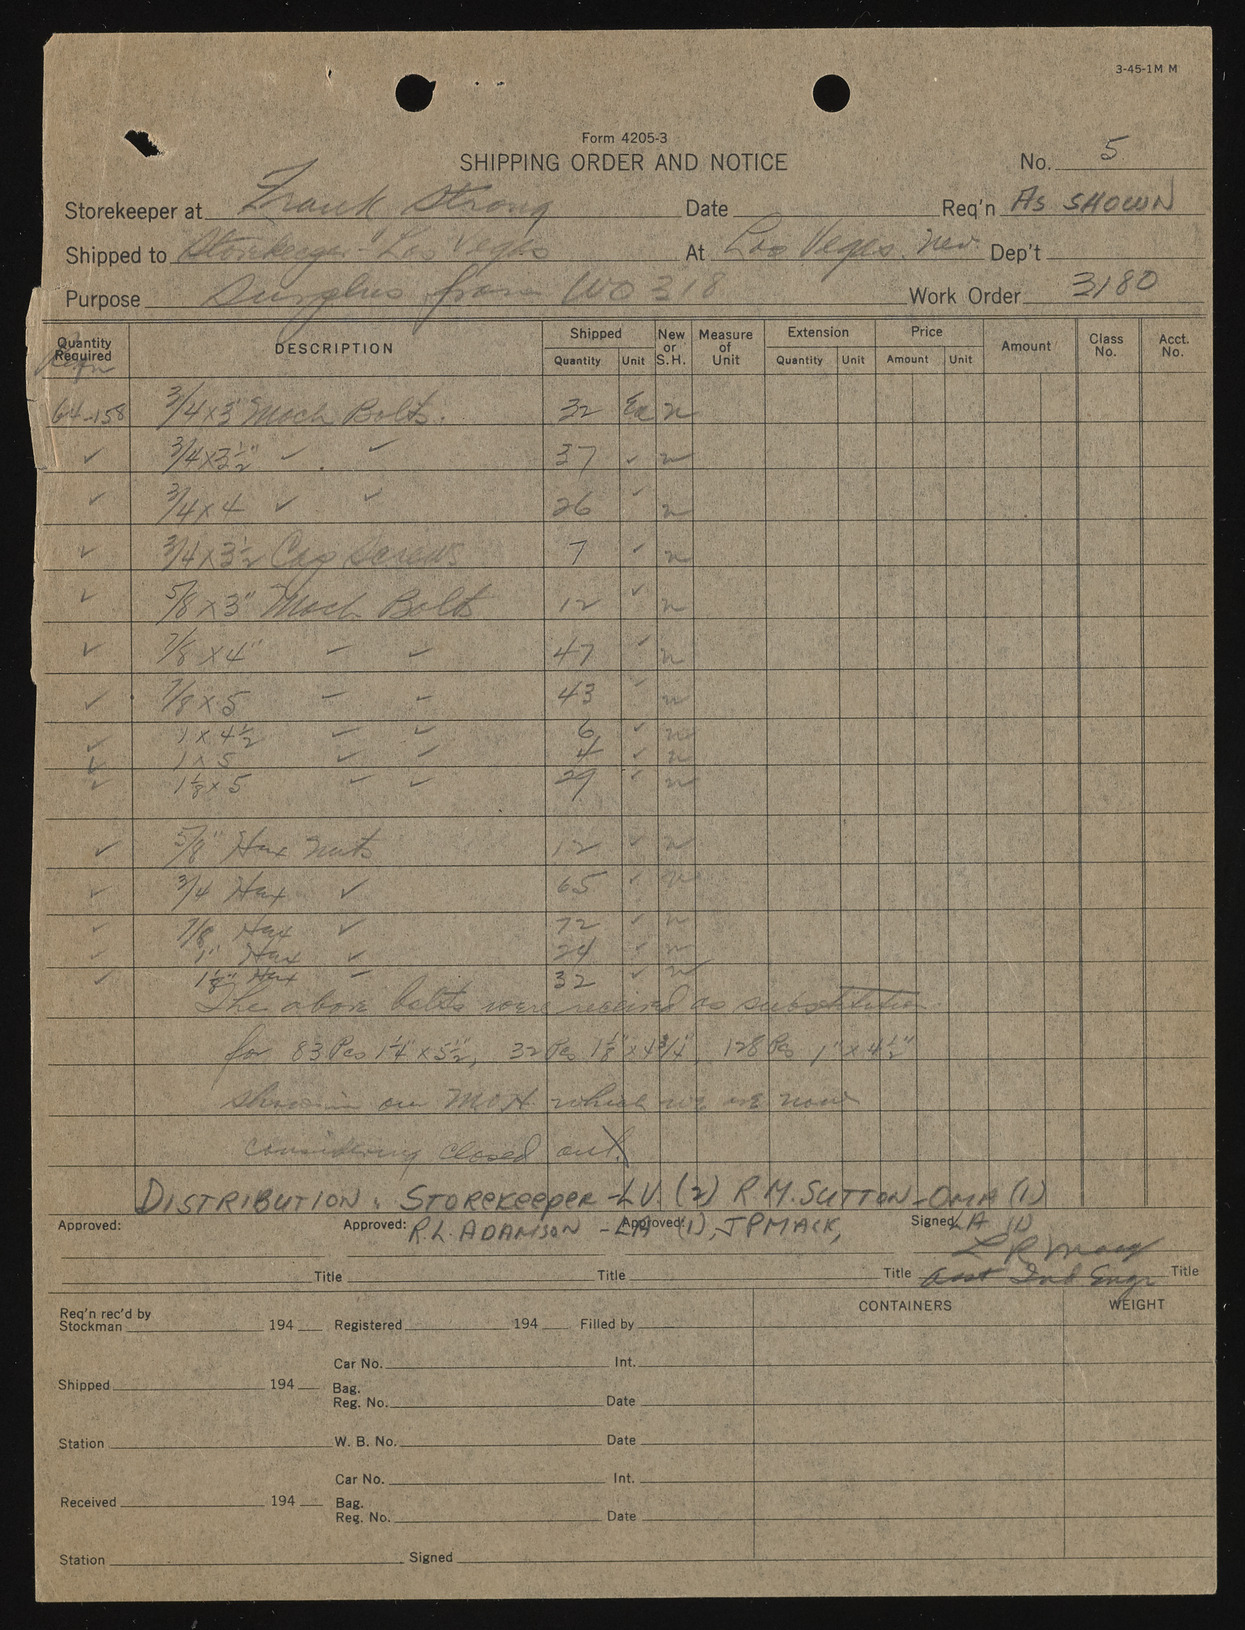 3-45-1M M
Form 4205-3
SHIPPING ORDER AND NOTICE
No. 5
Storekeeper at Frank Strong Date Req'n As SHOWN
Shipped to Storekeeper - Las Vegas At Las Vegas, Nev. Dep't
Purpose Surplus from WO 318 Work Order 3180
Quantity Required DESCRIPTION Shipped Quantity Unit New or S.H. Measure of Unit Extension Quantity Unit Price Amount Unit Amount Class No. Acct. No.
Reqn
64-158 3/4 x 3" Mach Bolts. 32 Ea n
✓ 3/4 x 3 1/2" ✓ ✓ 37 ✓ n
✓ 3/4 x 4 ✓ ✓ 26 ✓ n
✓ 3/4 x 3 1/2 Cap Screws 7 ✓ n
✓ 5/8 x 3" Mach Bolts 12 ✓ n
✓ 7/8 x 4" ✓ ✓ 47 ✓ n
✓ 7/8 x 5 ✓ ✓ 43 ✓ n
✓ 1 x 4 1/2 ✓ ✓ 6 ✓ n
✓ 1 x 5 ✓ ✓ 4 ✓ n
✓ 1 1/8 x 5 ✓ ✓ 29 ✓ n
✓ 5/8" Hex nuts 12 ✓ n
✓ 3/4 Hex ✓ 65 ✓ n
✓ 7/8 Hex ✓ 72 ✓ n
✓ 1" Hex ✓ 24 ✓ n
✓ 1 1/8" Hex ✓ 32 ✓ n
The above bolts were received as substitution
for 83 Pcs 1 1/4" x 5 1/2", 32 Pcs 1 1/8" x 4 3/4", 128 Pcs 1" x 4 1/2"
shown on MOH which we are now
considering closed out.
DISTRIBUTION: STOREKEEPER - LV. (2) R.M. SUTTON - OMA (1)
Approved: Approved: R.L. ADAMSON - LA (1), Approved: J P MACK, Signed LA (1)
Title Title Title Asst Ind Engr Title
CONTAINERS WEIGHT
Req'n rec'd by
Stockman 194 Registered 194 Filled by
Car No. Int.
Shipped 194 Bag.
Reg. No. Date
Station W. B. No. Date
Car No. Int.
Received 194 Bag.
Reg. No. Date
Station Signed